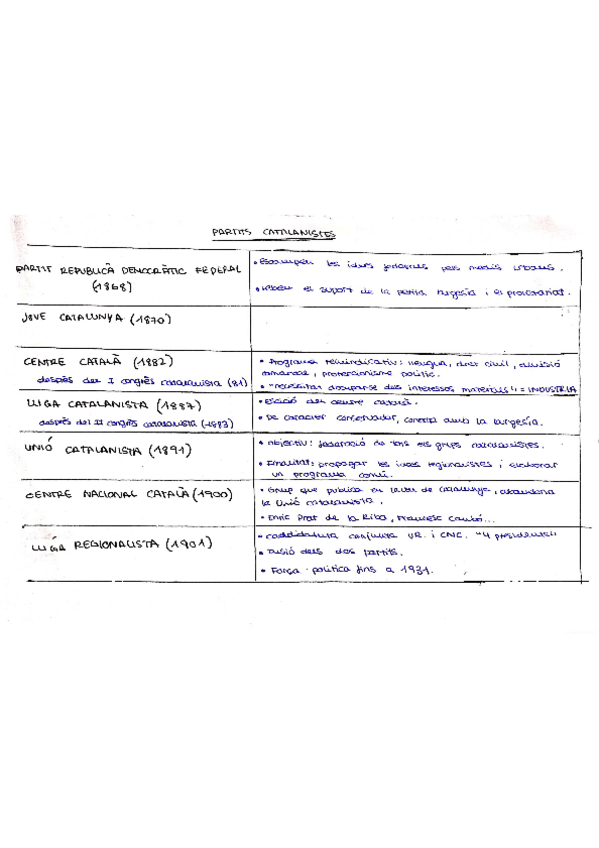 PARTITS CATALANISTES
PARTIT REPUBLICÀ DEMOCRÀTIC FEDERAL
(1868)
• Escampen les idees federals pels medis urbans.
• Reben el suport de la petita burgesia i el proletariat.
JOVE CATALUNYA (1870)
CENTRE CATALÀ (1882)
després del I congrés catalanista (81)
• Programa reivindicatiu: llengua, dret civil, divisió
comarcal, proteccionisme polític.
• "necessitat d'ocupar-se dels interessos materials" = INDÚSTRIA
LLIGA CATALANISTA (1887)
després del II congrés catalanista (1883)
• Escisió del centre català.
• De caràcter conservador, connecta amb la burgesia.
UNIÓ CATALANISTA (1891)
• Objectiu: federació de tots els grups catalanistes.
• Finalitat: propagar les idees regionalistes i elaborar
un programa comú.
CENTRE NACIONAL CATALÀ (1900)
• Grup que publica en La Veu de Catalunya, abandona
la Unió catalanista.
• Enric Prat de la Riba, Francesc Cambó...
LLIGA REGIONALISTA (1901)
• Candidatura conjunta UR. i CNC. "4 presidents"
• Fusió dels dos partits.
• Força política fins a 1931.